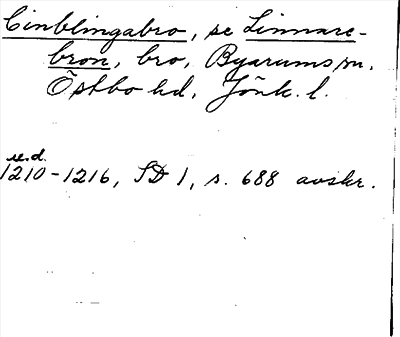 Cinblingabro, se Linnare-
bron, bro, Byarums sn.
Östbo hd, Jönk. l.
u.d.
1210-1216, SD 1, s. 688 avskr.